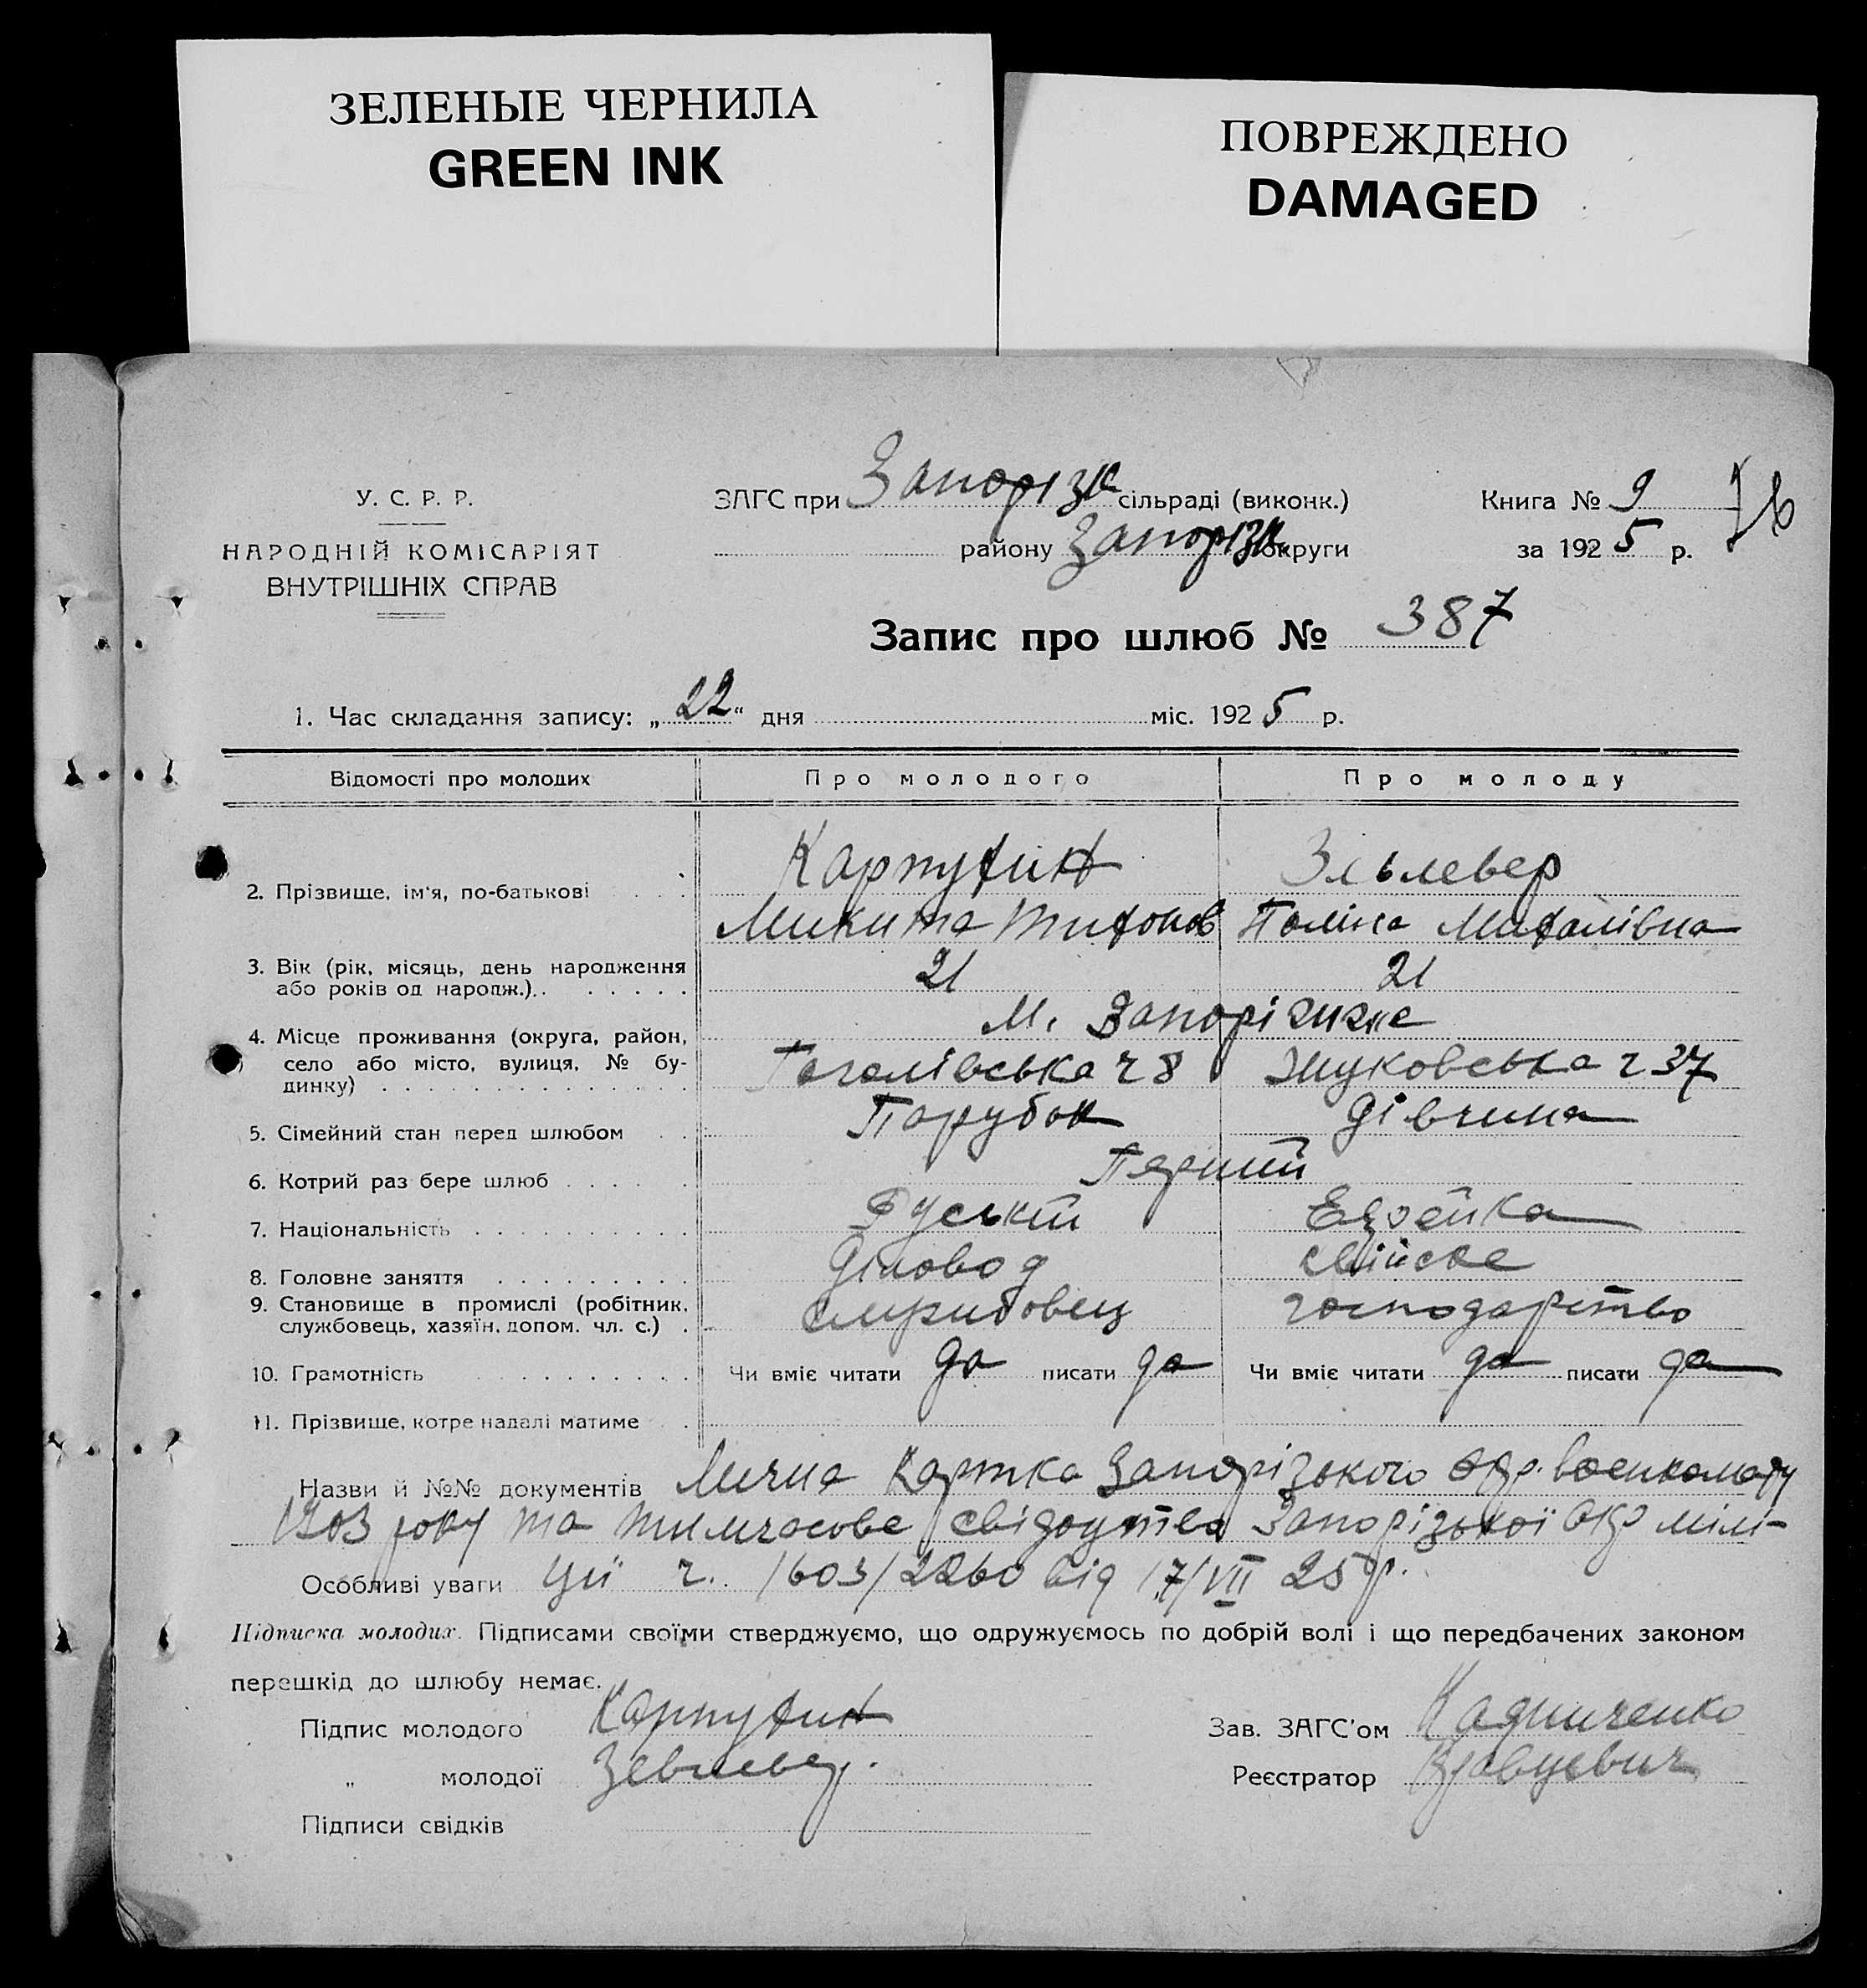 ЗЕЛЕНЫЕ ЧЕРНИЛА
GREEN INK
ПОВРЕЖДЕНО
DAMAGED
У. С. Р. Р.
НАРОДНІЙ КОМІСАРІЯТ
ВНУТРІШНІХ СПРАВ
ЗАГС при Запорізк сільраді (виконк.)
району Запорізк округи
Книга № 9
за 1925 р.
Запис про шлюб № 387
1. Час складання запису: „22“ дня міс. 1925 р.
Відомості про молодих Про молодого Про молоду
2. Прізвище, ім'я, по-батькові
Карпухин Зельевер
Микита Тихонов Поліна Михалівна
3. Вік (рік, місяць, день народження
або років од народж.)
21 21
4. Місце проживання (округа, район,
село або місто, вулиця, № бу-
динку)
м. Запоріжже
Гоголівська ч 8 Жуковська ч 37
5. Сімейний стан перед шлюбом Парубок Дівчина
6. Котрий раз бере шлюб Перший
7. Національність Руський Еврейка
8. Головне заняття Діловод
9. Становище в промислі (робітник,
службовець, хазяїн, допом. чл. с.) господарство
10. Грамотність Чи вміє читати да писати да Чи вміє читати да писати да
11. Прізвище, котре надалі матиме
Назви й №№ документів Лична картка Запорізького Окр. военкомату
1903 року та тимчасове свідоцтво Запорізької Окр міли-
Особливі уваги ції ч. 1603/2260 від 17/VII 25 р.
Підписка молодих. Підписами своїми стверджуємо, що одружуємось по добрій волі і що передбачених законом
перешкід до шлюбу немає.
Підпис молодого Карпухин
„ молодої
Підписи свідків
Зав. ЗАГС'ом
Реєстратор Кравцевич